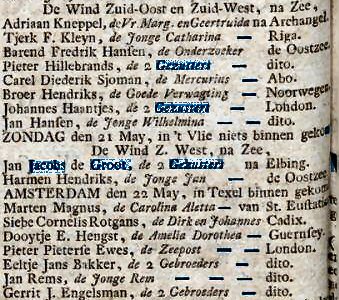 De Wind Zuid-Oost en Zuid-West, na Zee,
Adriaan Kneppel, de Vr. Marg. en Geertruida na Archangel.
Tjerk F. Kleyn, de Jonge Catharina — Riga.
Barend Fredrik Hansen, de Onderzoeker de Oostzee.
Pieter Hillebrands, de 2 Gezusters — dito.
Carel Diederik Sjoman, de Mercurius — Abo.
Broer Hendriks, de Goede Verwagting — Noorwegen
Johannes Haantjes, de 2 Gezusters — London.
Jan Hansen, de Jonge Wilhelmina — dito.
ZONDAG den 21 May, in 't Vlie niets binnen geko
De Wind Z. West, na Zee,
Jan Jacobs de Groot, de 2 Gezusters na Elbing.
Harmen Hendriks, de Jonge Jan — de Oostzee
AMSTERDAM den 22 May, in Texel binnen gekom
Marten Magnus, de Carolina Aletta — van St. Eustati
Siebe Cornelis Rotgans, de Dirk en Johannes Cadix.
Dooytje E. Hengst, de Amelia Dorothea — Guernsey.
Pieter Pieterse Ewes, de Zeepost — London.
Eeltje Jans Bakker, de 2 Gebroeders — dito.
Jan Rems, de Jonge Rem — dito.
Gerrit J. Engelsman, de 2 Gebroeders — dito.